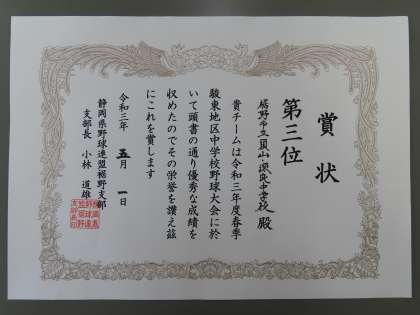 賞状
第三位
裾野市立富岡・深良中学校殿
貴チームは令和三年度春季
駿東地区中学校野球大会に於
いて頭書の通り優秀な成績を
収めたのでその栄誉を讃え茲
にこれを賞します
令和三年 五月 一日
静岡県野球連盟裾野支部
支部長 小林 道雄